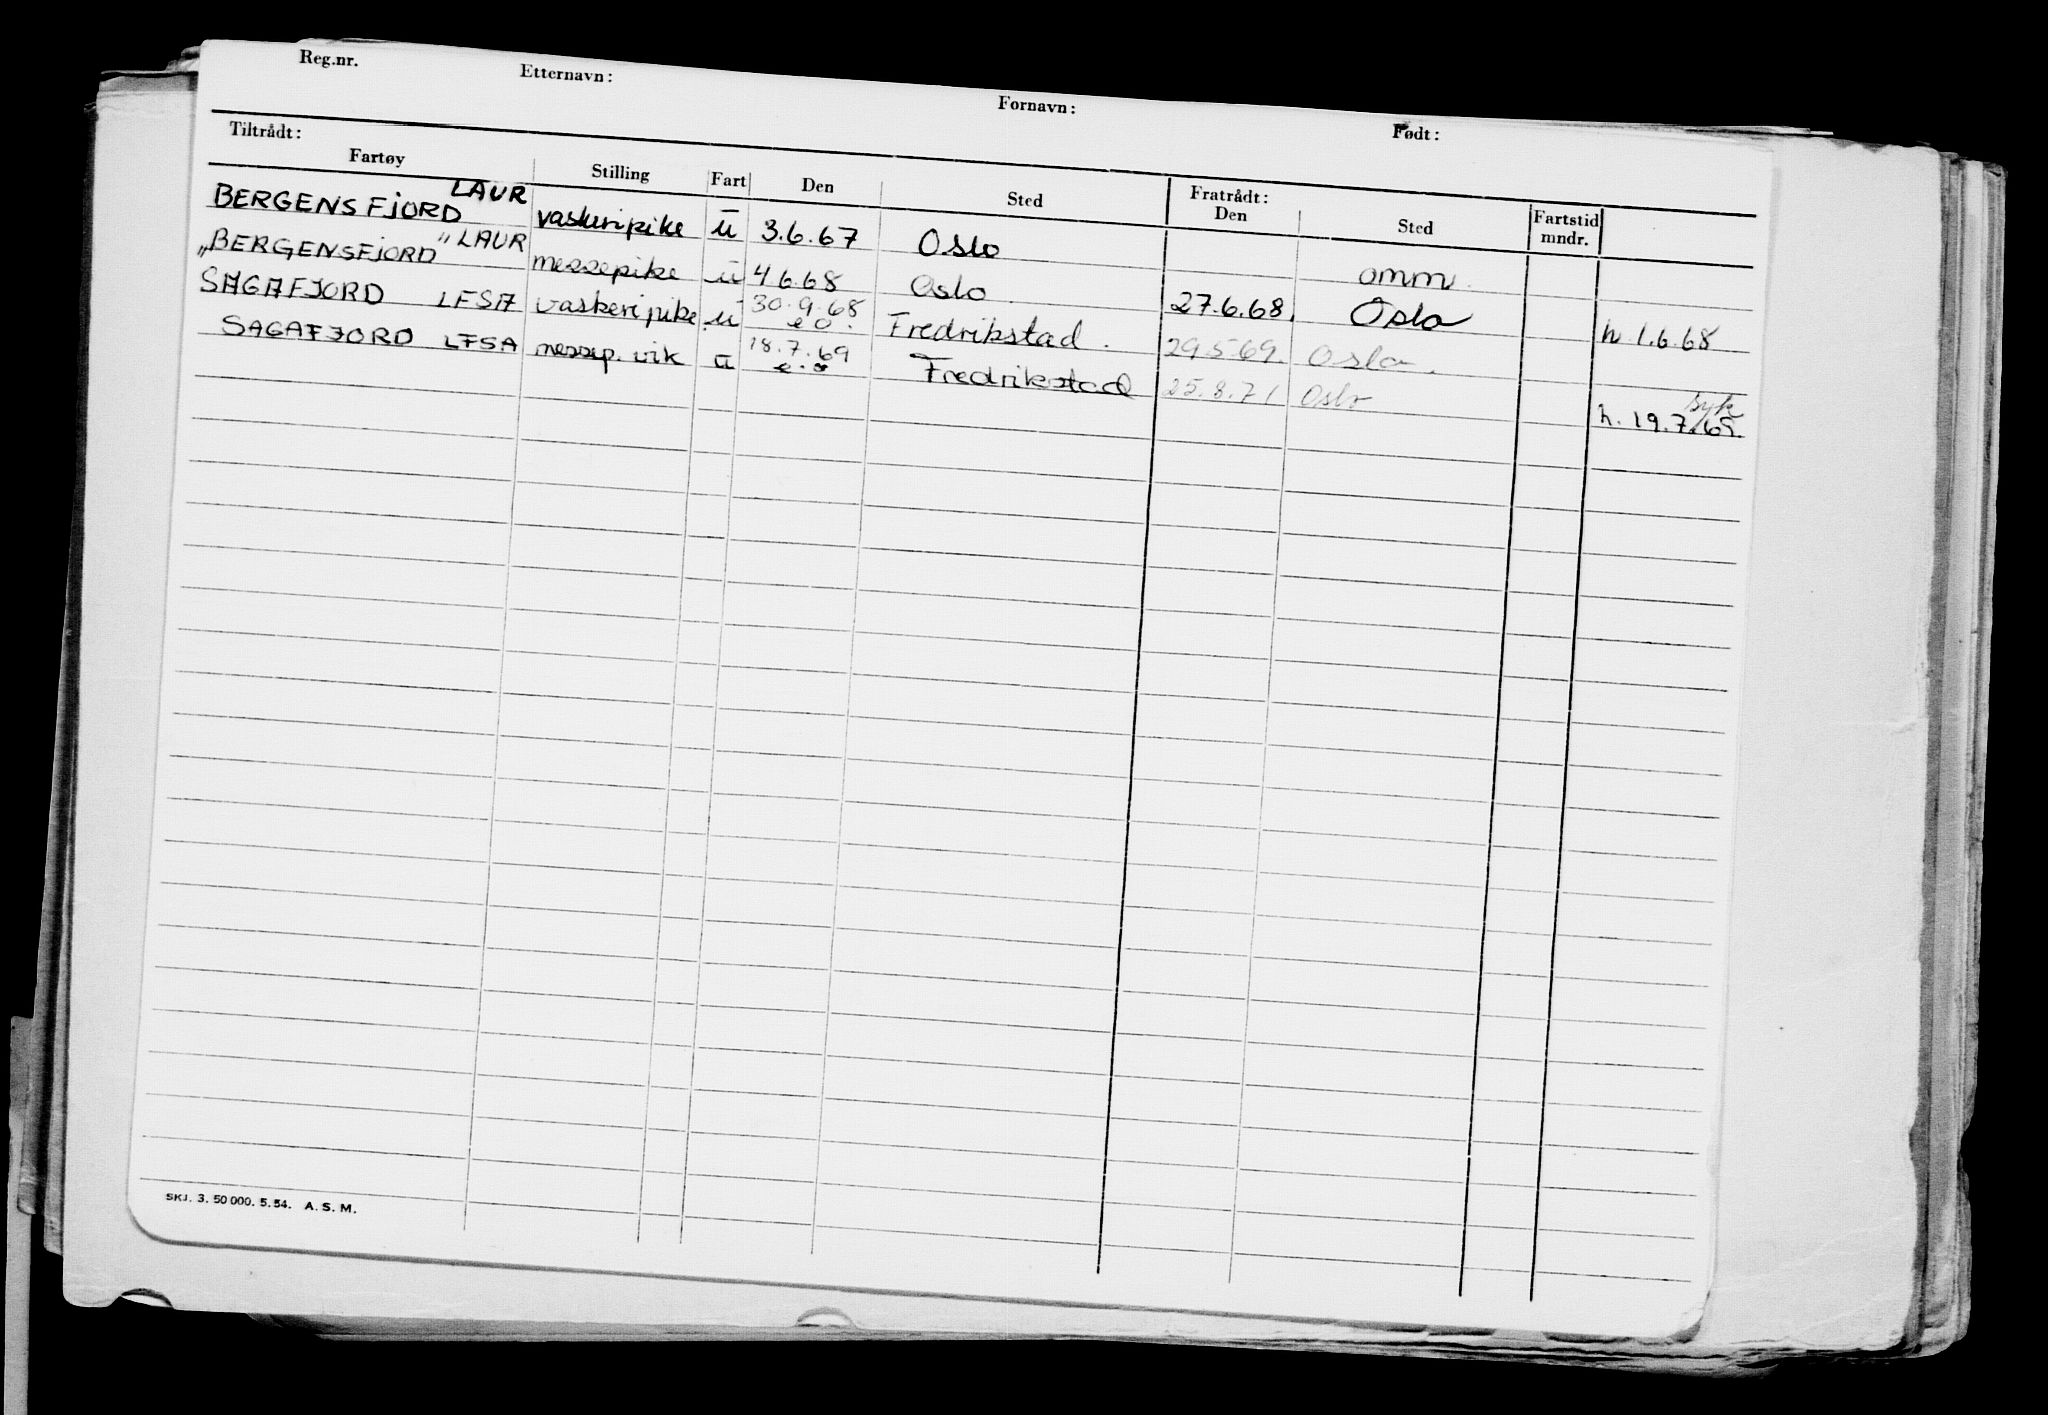 Reg.nr. Etternavn: Fornavn: Født:
Tiltrådt: Fratrådt:
Fartøy Stilling Fart Den Sted Den Sted Fartstid mndr.
BERGENSFJORD LAUR vaskeripike u 3.6.67 Oslo omm
„BERGENSFJORD" LAUR messepike u 4.6.68 Oslo 27.6.68 Oslo h 1.6.68
SAGAFJORD LFSA vaskeripike u 30.9.68 e o. Fredrikstad. 29.5.69. Oslo.
SAGAFJORD LFSA messep. vik u 18.7.69 e.o Fredrikstad 25.8.71 Oslo syk h. 19.7.69.
SKJ. 3. 50 000. 5.54. A. S. M.